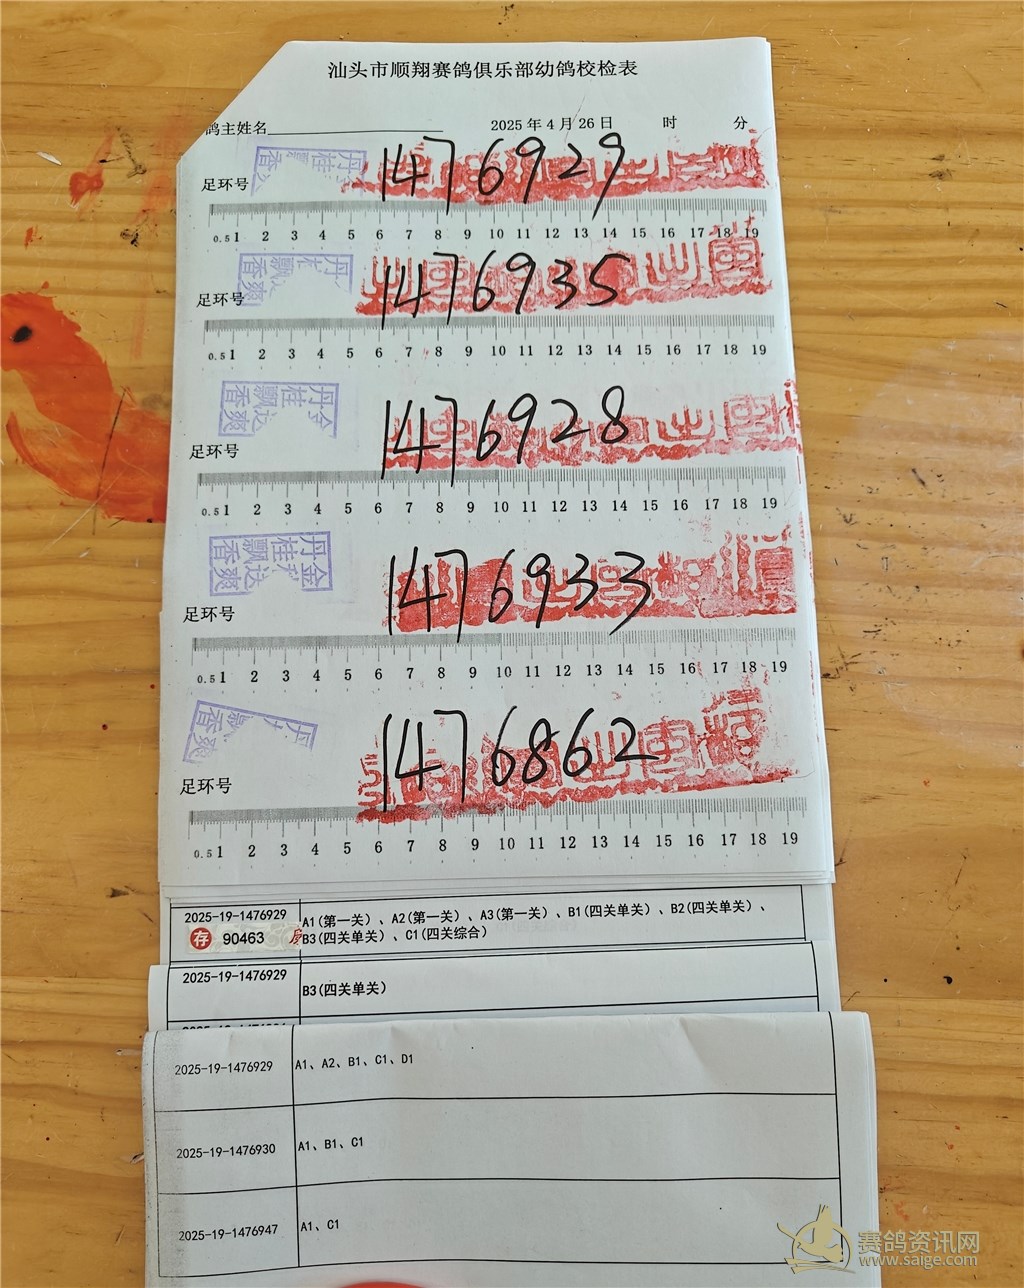 汕头市顺翔赛鸽俱乐部幼鸽校检表
鸽主姓名 2025 年 4 月 26 日 时 分
丹桂飘香
足环号 1476929
0.5 1 2 3 4 5 6 7 8 9 10 11 12 13 14 15 16 17 18 19
丹飘香爽
足环号 1476935
0.5 1 2 3 4 5 6 7 8 9 10 11 12 13 14 15 16 17 18 19
金丹桂飘达香爽
足环号 1476928
0.5 1 2 3 4 5 6 7 8 9 10 11 12 13 14 15 16 17 18 19
金丹桂飘达香爽
足环号 1476933
0.5 1 2 3 4 5 6 7 8 9 10 11 12 13 14 15 16 17 18 19
丹飘香爽
足环号 1476862
0.5 1 2 3 4 5 6 7 8 9 10 11 12 13 14 15 16 17 18 19
2025-19-1476929 A1(第一关)、A2(第一关)、A3(第一关)、B1(四关单关)、B2(四关单关)、
存 90463 B3(四关单关)、C1(四关综合)
2025-19-1476929 B3(四关单关)
2025-19-1476929 A1、A2、B1、C1、D1
2025-19-1476930 A1、B1、C1
2025-19-1476947 A1、C1
赛鸽资讯网
www.saige.com